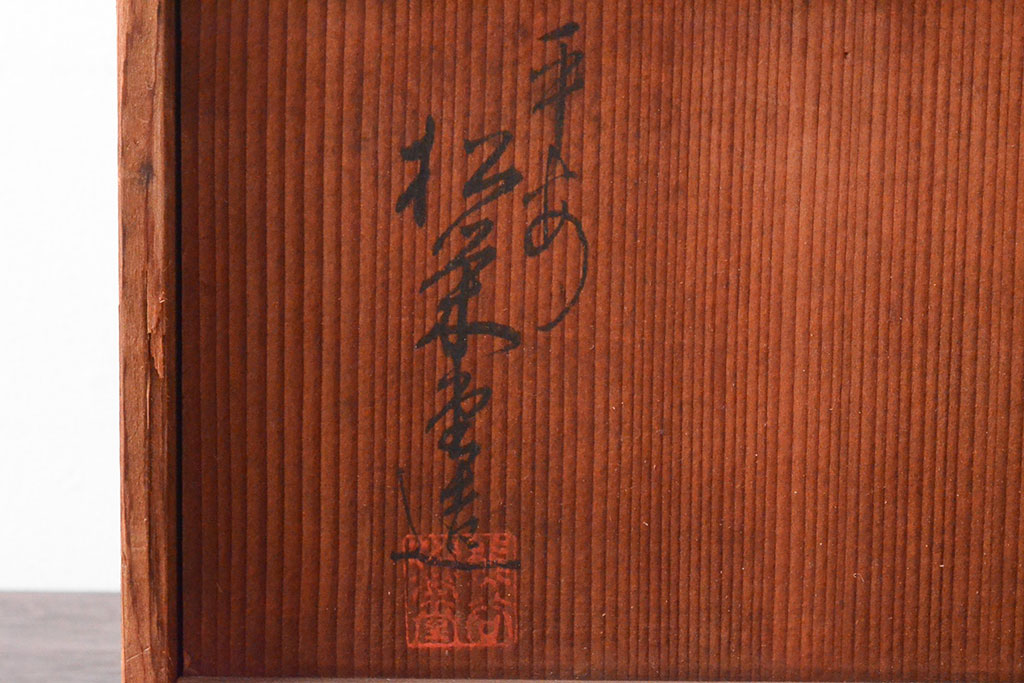 平安
松榮堂造